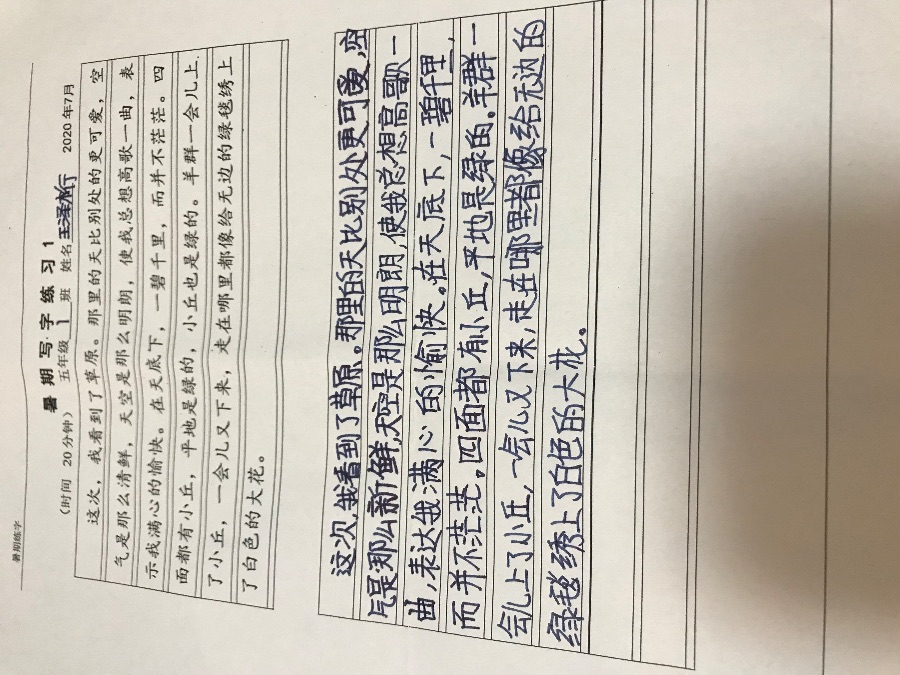 暑期练字
暑期写字练习1
（时间 20分钟） 五年级 1 班 姓名 王泽行 2020年7月
这次，我看到了草原。那里的天比别处的更可爱，空
气是那么清鲜，天空是那么明朗，使我总想高歌一曲，表
示我满心的愉快。在天底下，一碧千里，而并不茫茫。四
面都有小丘，平地是绿的，小丘也是绿的。羊群一会儿上
了小丘，一会儿又下来，走在哪里都像给无边的绿毯绣上
了白色的大花。
这次，我看到了草原。那里的天比别处更可爱，空
气是那么新鲜，天空是那么明朗，使我总想高歌一
曲，表达我满心的愉快。在天底下，一碧千里，
而并不茫茫。四面都有小丘，平地是绿的。羊群一
会儿上了小丘，一会儿又下来，走在哪里都像给无边的
绿毯绣上了白色的大花。